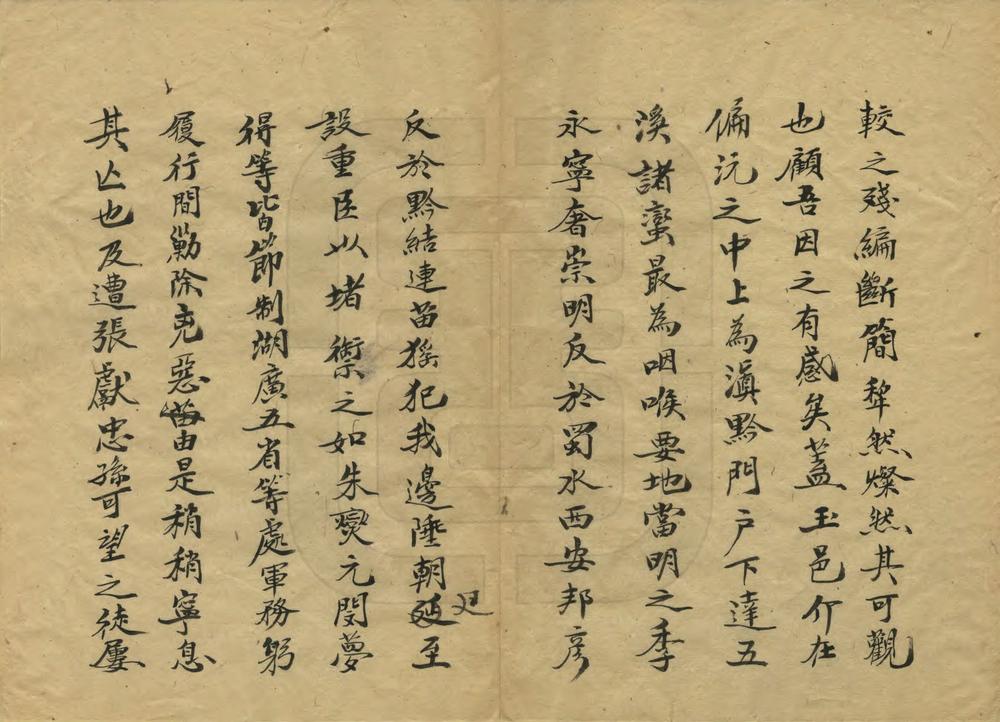 較之殘編斷簡犂然燦然其可觀
也顧吾因之有感矣蓋玉邑介在
偏沅之中上為滇黔門戶下達五
溪諸蠻最為咽喉要地當明之季
永寧奢崇明反於蜀水西安邦彥
反於黔結連苗猺犯我邊陲朝廷至
設重臣以堵禦之如朱燮元閔夢
得等皆節制湖廣五省等處軍務躬
履行間勦除兇惡苗由是稍稍寧息
其亾也及遭張獻忠孫可望之徒屢